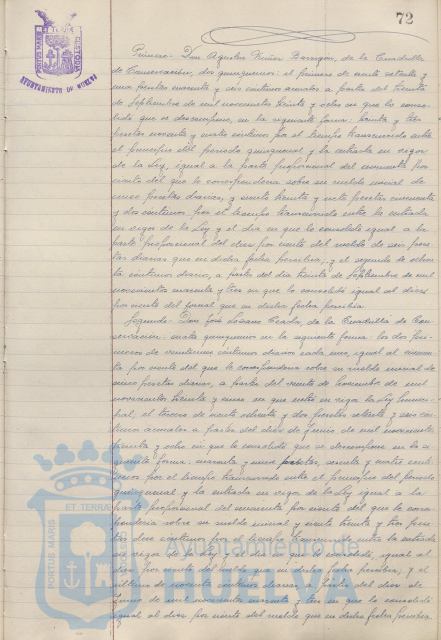 72
PORTUS MARIS ET TERRÆ CUSTODIA
AYUNTAMIENTO DE HUELVA
Primero. Don Agustín Núñez Barragán, de la Cuadrilla
de Conservación, dos quinquenios: el primero de ciento setenta y
una pesetas noventa y seis céntimos anuales a partir del treinta
de Septiembre de mil novecientos treinta y ocho en que lo conso-
lidó que se descompone, en la siguiente forma: treinta y tres
pesetas noventa y cuatro céntimos por el tiempo transcurrido entre
el principio del período quinquenal y la entrada en vigor
de la Ley, igual a la parte proporcional del cincuenta por
ciento del que le correspondería sobre su sueldo inicial de
cinco pesetas diarias, y ciento treinta y siete pesetas cincuenta
y dos céntimos por el tiempo transcurrido entre la entrada
en vigor de la Ley y el día en que lo consolidó igual a la
parte proporcional del diez por ciento del sueldo de seis pese-
tas diarias que en dicha fecha percibía, y el segundo de ochen-
ta céntimos diarios, a partir del día treinta de Septiembre de mil
novecientos cuarenta y tres en que lo consolidó igual al diez
por ciento del jornal que en dicha fecha percibía.
Segundo. Don José Lozano de la Cuadrilla de Con-
servación, cuatro quinquenios en la siguiente forma: los dos pri-
meros de veinticinco céntimos diarios cada uno, igual al cincuen-
ta por ciento del que le correspondería sobre su sueldo inicial de
cinco pesetas diarias, a partir del de Noviembre de mil
novecientos treinta y cinco en que entró en vigor la Ley Munici-
pal, el tercero de ciento ochenta y dos pesetas setenta y seis cén-
timos anuales a partir del diez de Junio de mil novecientos
treinta y ocho en que lo consolidó que se descompone en la si-
guiente forma: cuarenta y nueve pesetas, sesenta y cuatro cénti-
mos por el tiempo transcurrido entre el principio del período
quinquenal y la entrada en vigor de la Ley igual a la
parte proporcional del cincuenta por ciento del que le corres-
pondería sobre su sueldo inicial y ciento treinta y tres pese-
tas doce céntimos por el tiempo transcurrido entre la entrada
en vigor de la Ley y el día en que lo consolidó, igual al
diez por ciento del sueldo que en dicha fecha percibía, y el
último de noventa céntimos diarios a partir del diez de
Junio de mil novecientos cuarenta y tres en que lo consolidó
igual al diez por ciento del sueldo que en dicha fecha percibía.
PORTUS MARIS ET TERRÆ
Ayuntamiento de
HUELVA